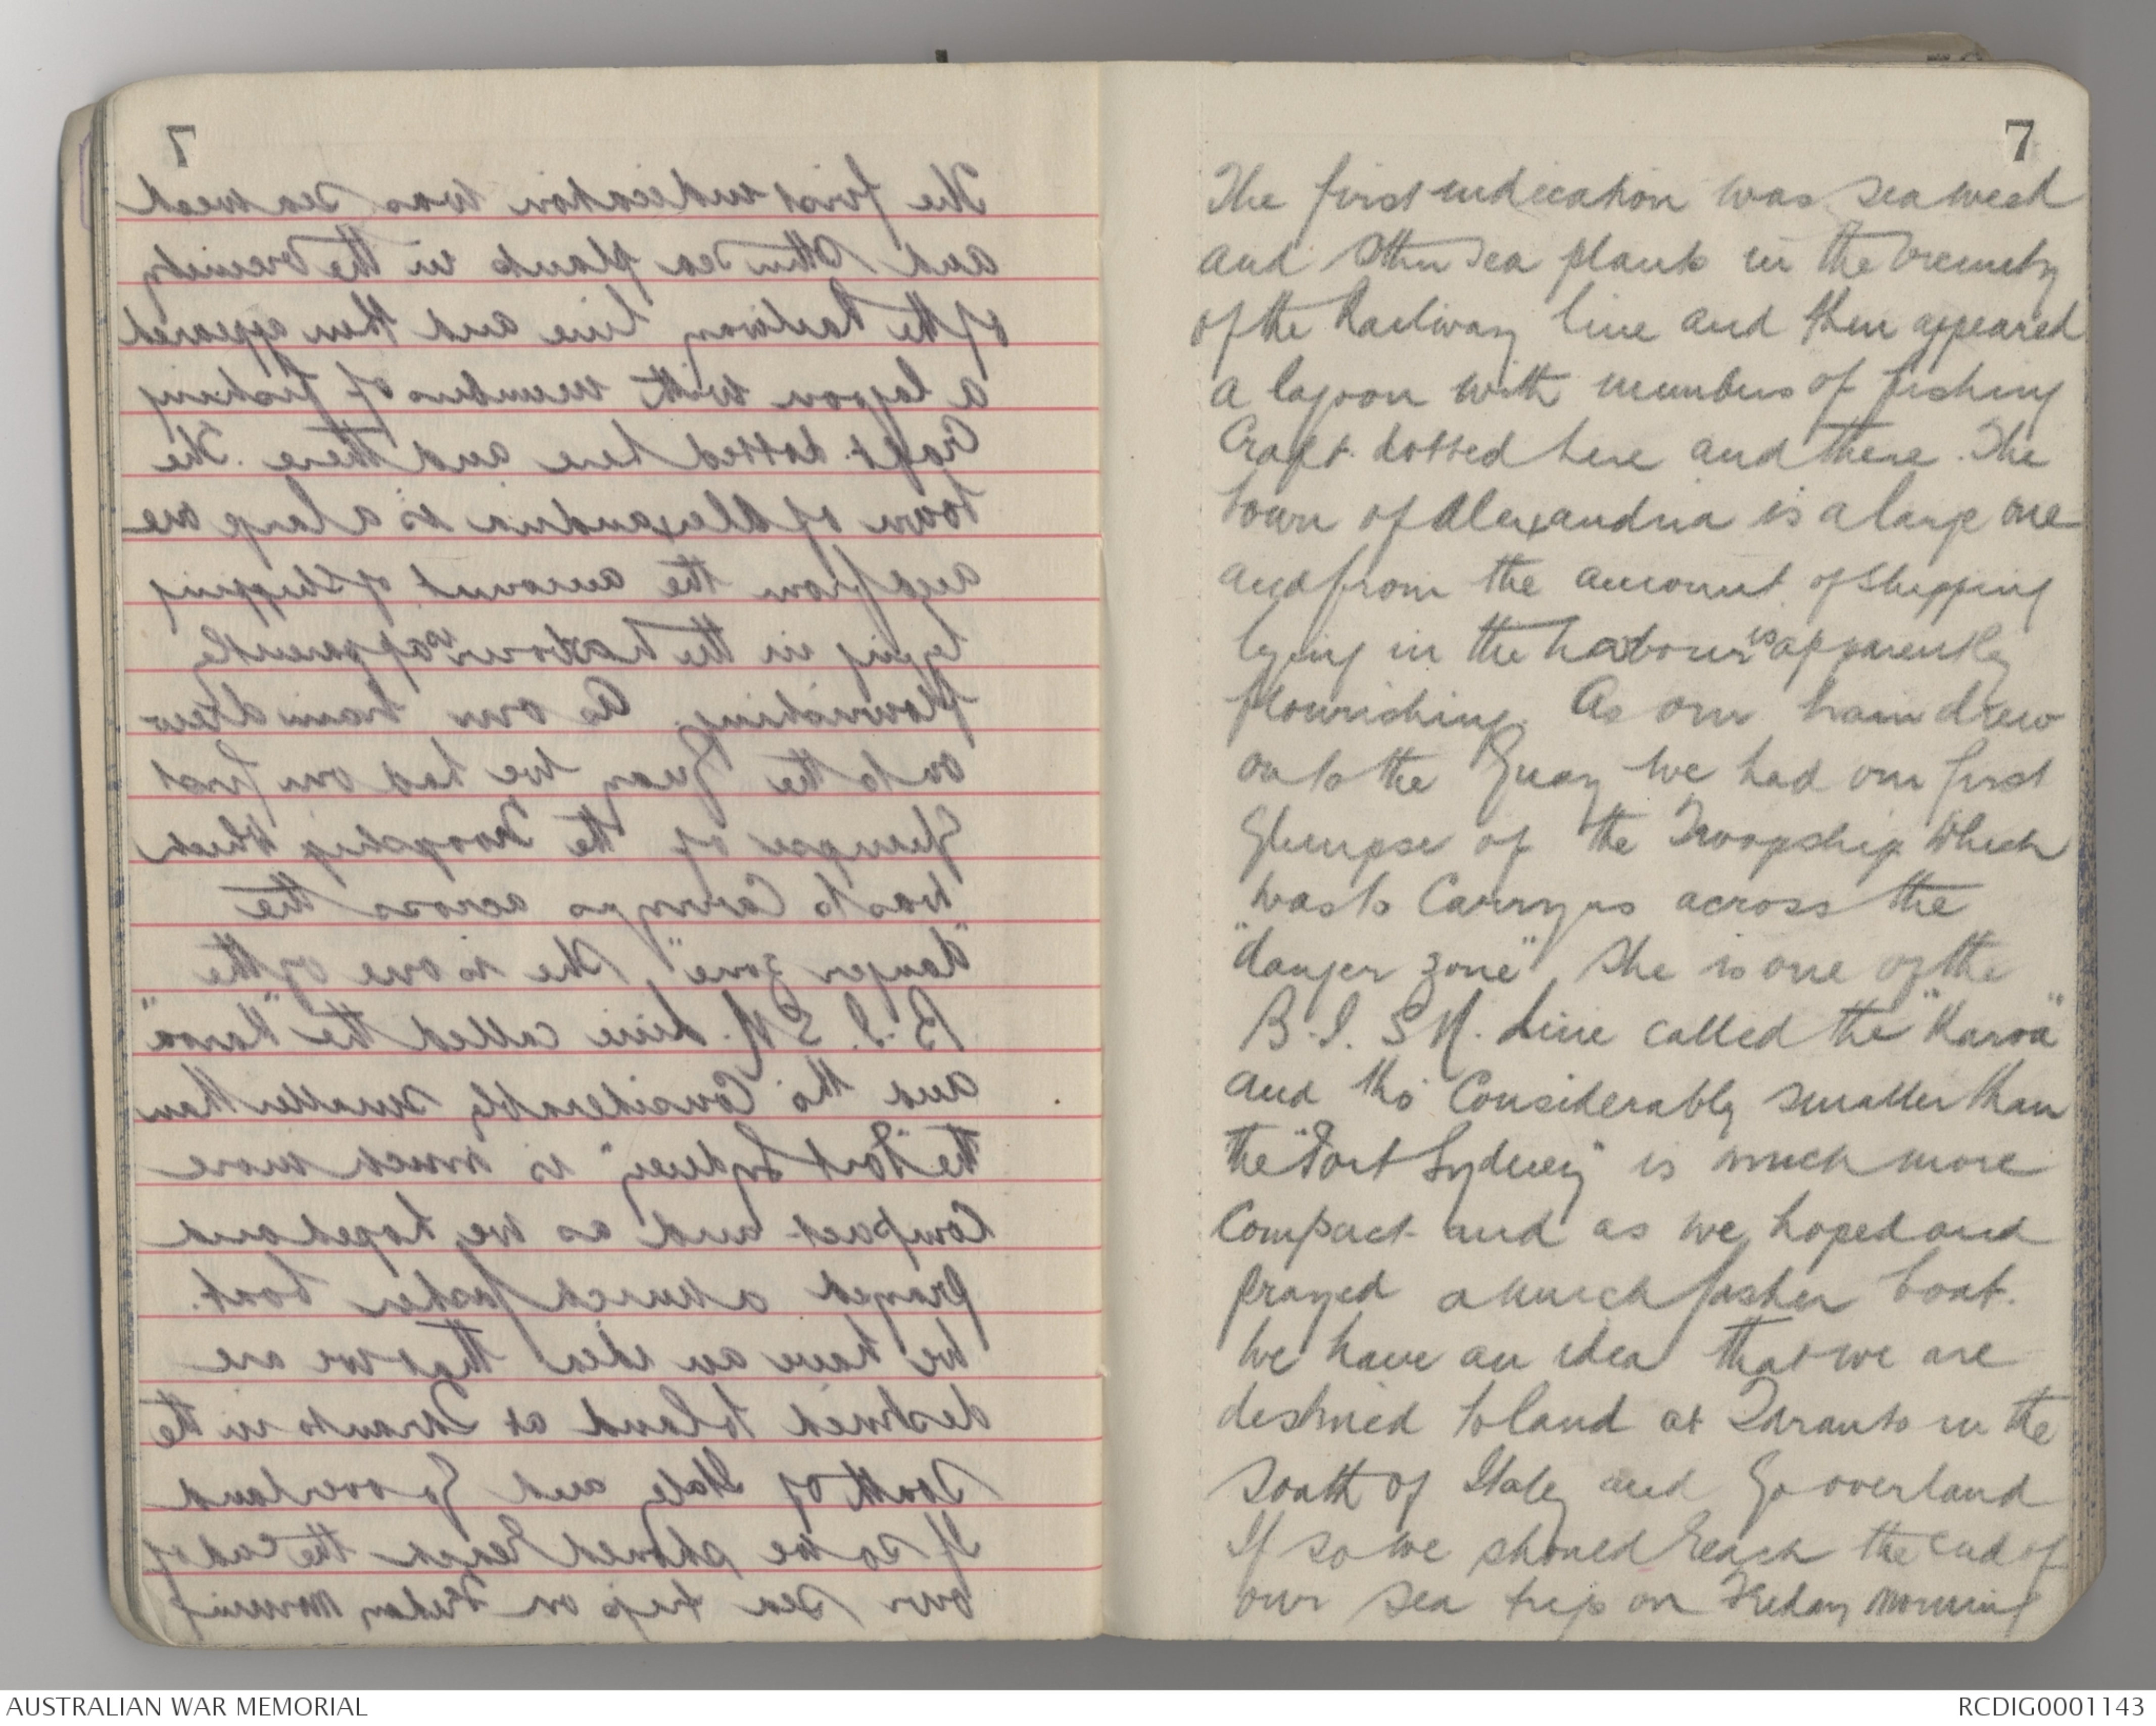 7
The first indication was seaweed
and other sea plants in the vicinity
of the Railway line and then appeared
a lagoon with numbers of fishing
Craft. dotted here and there. The
town of Alexandria is a large one
and from the amount of shipping
lying in the harbour is apparently
flourishing. As our train drew
on to the Quay we had our first
Glimpse of the Troopship which
was to Carry us across the
"danger zone". She is one of the
B.I. S.N. Line called the "Karoa"
and tho' Considerably smaller than
the "Port Sydney" is much more
Compact and as we hoped and
prayed a much faster boat.
We have an idea that we are
destined to land at Taranto in the
South of Italy and Go overland
If so we should Reach the end of
our sea trip on Friday morning
AUSTRALIAN WAR MEMORIAL
RCDIG0001143